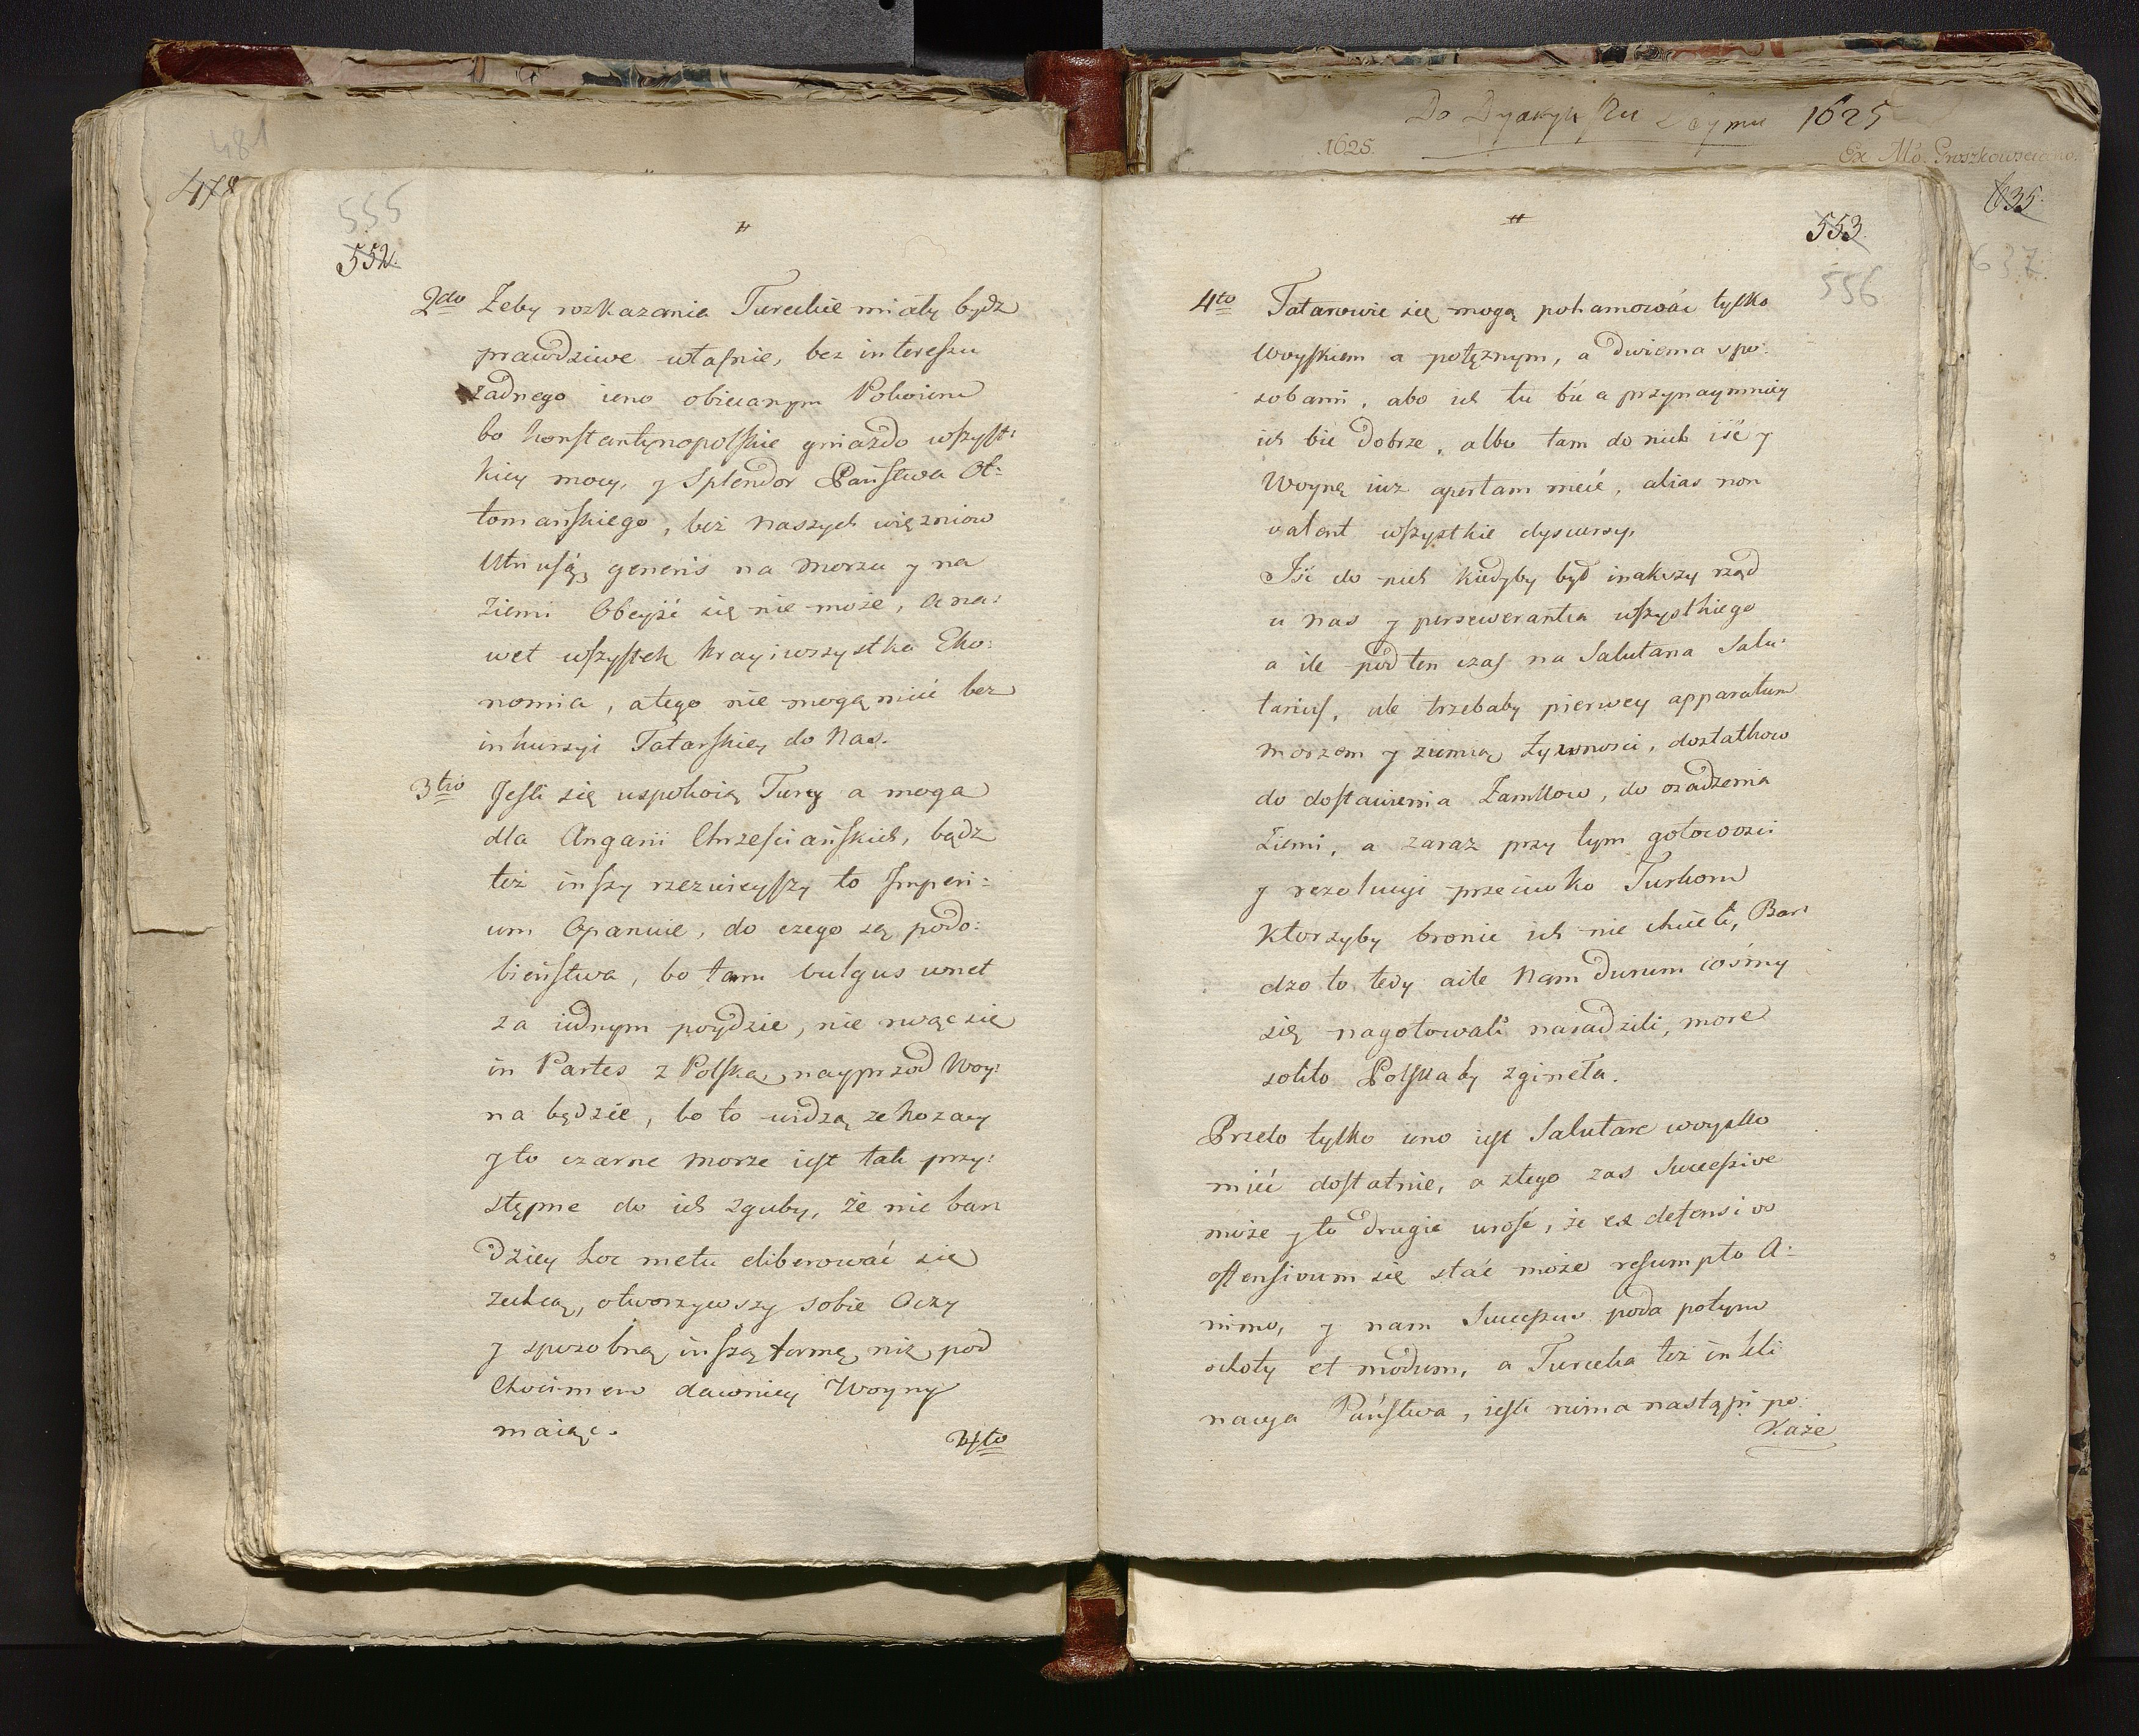 481
478
555
552.
2do Żeby rozkazania Tureckie miały bydz
prawdziwe własnie, bez interessu
żadnego ieno obiecanym Pokoiem
bo konstantynopolskie gniazdo wszyst:
kiey mocy, y Splendor Państwa Ot:
tomańskiego, bez naszych więzniow
Utriusq generis na morzu y na
ziemi Obeyść się nie może, a na:
wet wszystek kray i wszystka Eko:
nomia, a tego nie mogą mieć bez
inkursyi Tatarskiey do Nas.
3tio Jesli się uspokoią Turcy a moga
dla Angarii Chrzesciańskich, bądz
też inszy rzezwieyszy to Imperi:
um Opanuie, do czego są podo:
bieństwa, bo tam vulgus wnet
za iednym poydzie, nie rwąc się
in Partes z Polską nayprzod Woy:
na będzie, bo to widzą ze kozacy
y to czarne morze iest tak przy:
stępne do ich zguby, że nie bar
dziey hoc metu eliberować się
zechcą, otworzywszy sobie Oczy
y sposobną inszą formę niż pod
Chocimem dawniey Woyny
maiąc.
4to
Do Dyaryuszu Seymu 1625
1625.
Ex Mo. Proszkowsciano.
635.
637.
553.
556
4to Tatarowie się mogą pohamować tylko
Woyskiem a potęznym, a dwiema spo:
sobami, abo ich tu bić a przynaymniey
ich bić dobrze, albo tam do nich iść y
Woynę iuz apertam mieć, alias non
valent wszystkie dyscursy.
Iść do nich kiedyby był inakszy rząd
u nas y perseverantia wszystkiego
a ile pod ten czas na Salutana Salu:
tarius, ale trzebaby pierwey apparatum
morzem y ziemią żywnosci, dostatkow
do dostawienia Zamkow, do osadzenia
Ziemi, a zaraz przy tym gotowosci
y rezolucyi przeciwko Turkom
ktorzyby bronic ich nie chcieli, Bar:
dzo to tedy aile Nam durum cośmy
się nagotowali nasadzili, more
solito Polskaby zgineła.
Przeto tylko ieno iest Salutare woysko
mieć dostatnie, a ztego zas Successive
może y to drugie urość, że ex defensivo
offensivum się stać może resumpto A:
nimo, y nam Successus poda potym
ochoty et modum, a Turecka też inkli
nacya Państwa, iesli ruina nastąpi po:
Każe